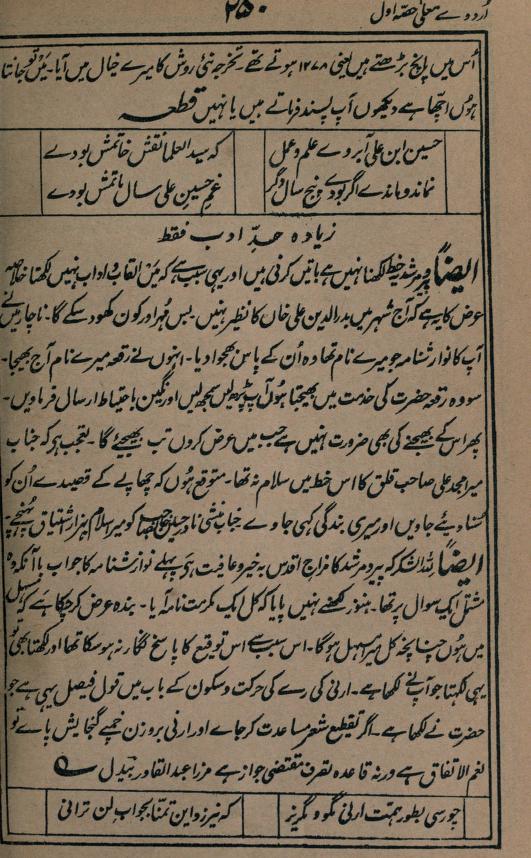 اُردوے معلیٰ حصّہ اول
۲۵۰
اُس میں پانچ بڑھتے ہیں یعنی ۱۲۷۸ ہوتے تھے۔ تخرجہ نئی روش کا میرے خیال میں آیا۔ میں تو جانتا
ہوں اچھا ہے دیکھوں آپ پسند فرماتے ہیں یا نہیں قطعہ
حسین ابن علی آبروے علم و عمل
کہ سید العلما نقش خاتمش بودے
نماند و ماندے اگر بودے پنج سال دگر
غمِ حسین علی سال ماتمش بودے
زیادہ حدِّ ادب فقط
ایضاً پیرومرشد یہ خط لکھنا نہیں ہے باتیں کرنی ہیں اور یہی سبب ہے کہ میں القاب و آداب نہیں لکھتا خلاصہ
عرض کا یہ ہے کہ آج شہر میں بدرالدین علی خاں کا نظیر نہیں۔ بس مُہر اور کون کھود سکے گا۔ ناچار میں نے
آپ کا نوازشنامہ جو میرے نام تھا وہ اُن کے پاس بھجوا دیا۔ انہوں نے رقعہ میرے نام آج بھیجا۔
سو وہ رقعہ حضرت کی خدمت میں بھیجتا ہوں آپ پڑھ لیں سمجھ لیں اور نگین باحتیاط ارسال فرماویں۔
پھر اس کے بھیجنے کی بھی ضرورت نہیں ہے جب میں عرض کروں تب بھیجئے گا۔ تعجب ہے کہ جناب
میر امجد علی صاحب قلق کا اس خط میں سلام نہ تھا۔ متوقع ہوں کہ چھاپے کے قصیدے اُن کو
سُنا دیئے جاویں اور میری بندگی کہی جاوے جناب منشی نادر حسین خاں صاحب کو میرا سلام ہزار اشتیاق پہنچے۔
ایضاً للہ الشکر کہ پیر و مرشد کا مزاج اقدس بخیر و عافیت ہے پہلے نوازشنامہ کا جواب باآنکہ وہ
مشتمل ایک سوال پر تھا۔ ہنوز لکھنے نہیں پایا کہ کل ایک کرمت نامہ آیا۔ بندہ عرض کر چکا ہے کہ مسہل
میں ہوں چنانچہ کل میرا مسہل ہوگا۔ اس سبب سے اس توقیع کا پاسخ نگار نہ ہو سکا تھا اور لکھتا بھی تو
یہی لکھتا جو آپ نے لکھا ہے۔ ارنی کی رے کی حرکت و سکون کے باب میں قول فیصل یہی ہے جو
حضرت نے لکھا ہے۔ اگر تقطیع شعر مساعدت کر جاے اور ارنی بروزن چمنے گنجایش پاے تو
نعم الاتفاق ہے ورنہ قاعدہ تصرف مقتضی جواز ہے مرزا عبدالقادر بیدل
چو رسی بطور ہمّت ارنی مگو و مگریز
کہ نیرزد این تمنّا بجواب لن ترانی